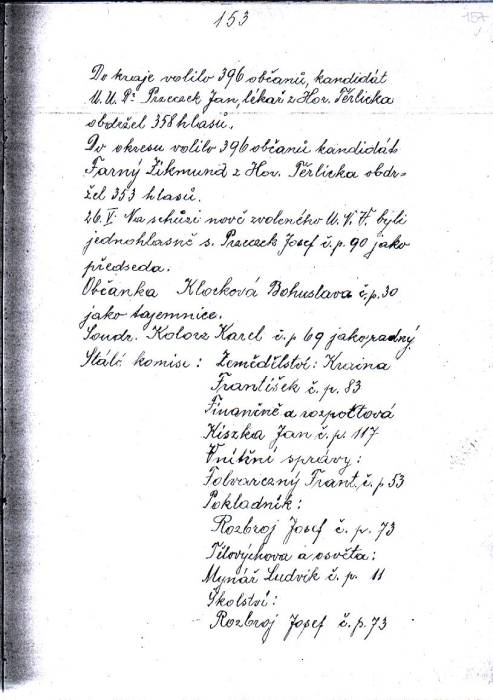 153
157
Do kraje volilo 396 občanů, kandidát
U.U. Dr Przeczek Jan, lékař z Hor. Těrlicka
obdržel 358 hlasů.
Do okresu volilo 396 občanů kandidát
Farný Zikmund z Hor. Těrlicka obdr-
žel 353 hlasů.
26.V. Na schůzi nově zvoleného M.V.F. byli
jednohlasně s. Przeczek Josef č.p. 90 jako
předseda.
Občanka Klocková Bohuslava č.p. 30
jako tajemnice.
Soudr. Kolorz Karel č.p 69 jako radný
Stálé komise: Zemědělství: Kraina
František č.p. 83
Finančně a rozpočtová
Kiszka Jan č.p. 117
Vnitřní správy:
Folvarczný Frant, č.p 53
Pokladník:
Rozbroj Josef č.p. 73
Tělovýchova a osvěta:
Mynář Ludvík č.p. 11
Školství:
Rozbroj Josef č.p. 73